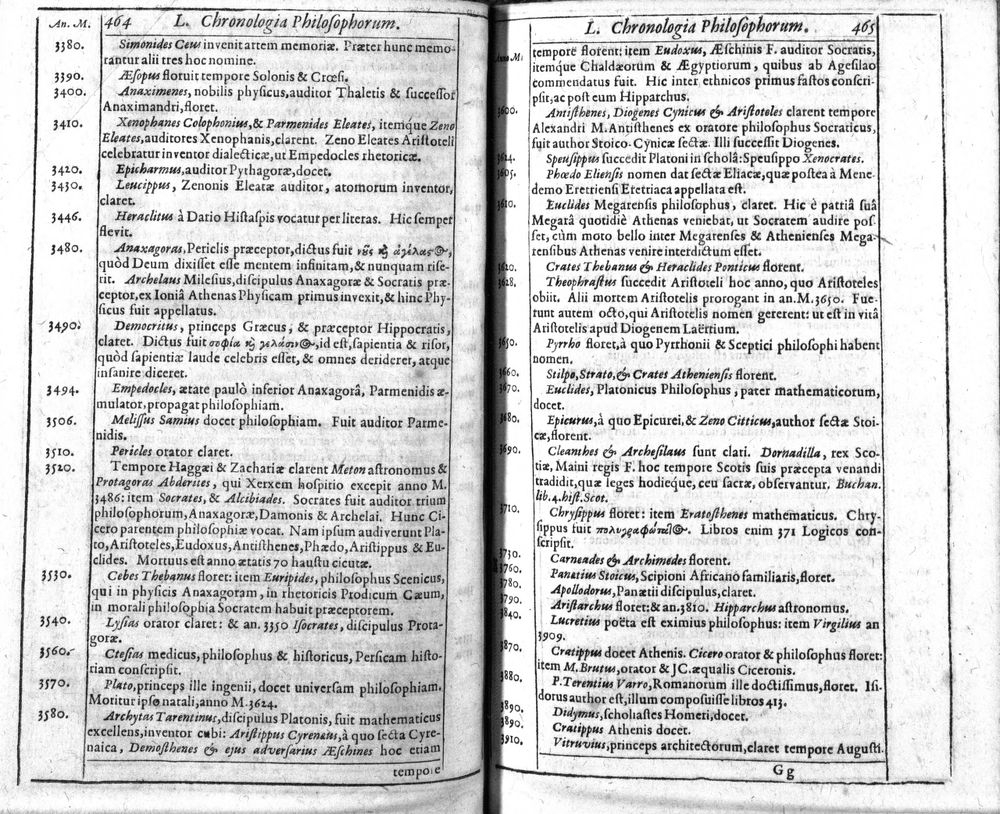 An. M. 464 L. Chronologia Philosophorum.
3380. Simonides Ceus invenit artem memoriæ. Præter hunc memo-
rantur alii tres hoc nomine.
3390. Æsopus floruit tempore Solonis & Crœsi.
3400. Anaximenes, nobilis physicus, auditor Thaletis & successor
Anaximandri, floret.
3410. Xenophanes Colophonius, & Parmenides Eleates, itemque Zeno
Eleates, auditores Xenophanis, clarent. Zeno Eleates Aristoteli
celebratur inventor dialecticæ, ut Empedocles rhetoricæ.
3420. Epicharmus, auditor Pythagoræ, docet.
3430. Leucippus, Zenonis Eleatæ auditor, atomorum inventor,
claret.
3446. Heraclitus à Dario Histaspis vocatur per literas. Hic semper
flevit.
3480. Anaxagoras, Periclis præceptor, dictus fuit
quòd Deum dixisset esse mentem infinitam, & nunquam rise-
rit. Archelaus Milesius, discipulus Anaxagoræ & Socratis præ-
ceptor, ex Ioniâ Athenas Physicam primus invexit, & hinc Phy-
sicus fuit appellatus.
3490. Democritus, princeps Græcus, & præceptor Hippocratis,
claret. Dictus fuit σοφία id est, sapientia & risor,
quòd sapientiæ laude celebris esset, & omnes derideret, atque
insanire diceret.
3494. Empedocles, ætate paulò inferior Anaxagorâ, Parmenidis æ-
mulator, propagat philosophiam.
3506. Melissus Samius docet philosophiam. Fuit auditor Parme-
nidis.
3510. Pericles orator claret.
3520. Tempore Haggæi & Zachariæ clarent Meton astronomus &
Protagoras Abderites, qui Xerxem hospitio excepit anno M.
3486: item Socrates, & Alcibiades. Socrates fuit auditor trium
philosophorum, Anaxagoræ, Damonis & Archelai. Hunc Ci-
cero parentem philosophiæ vocat. Nam ipsum audiverunt Pla-
to, Aristoteles, Eudoxus, Antisthenes, Phædo, Aristippus & Eu-
clides. Mortuus est anno ætatis 70 haustu cicutæ.
3530. Cebes Thebanus floret: item Euripides, philosophus Scenicus,
qui in physicis Anaxagoram, in rhetoricis Prodicum Cæum,
in morali philosophia Socratem habuit præceptorem.
3540. Lysias orator claret: & an. 3350 Isocrates, discipulus Prota-
goræ.
3560. Ctesias medicus, philosophus & historicus, Persicam histo-
riam conscripsit.
3570. Plato, princeps ille ingenii, docet universam philosophiam.
Moritur ipso natali, anno M. 3624.
3580. Archytas Tarentinus, discipulus Platonis, fuit mathematicus
excellens, inventor cubi: Aristippus Cyrenæus, à quo secta Cyre-
naica, Demosthenes & ejus adversarius Æschines hoc etiam
tempore
An. M. L. Chronologia Philosophorum. 465
tempore florent: item Eudoxus, Æschinis F. auditor Socratis,
itemque Chaldæorum & Ægyptiorum, quibus ab Agesilao
commendatus fuit. Hic inter ethnicos primus fastos conscri-
psit, ac post eum Hipparchus.
3600. Antisthenes, Diogenes Cynicus & Aristoteles clarent tempore
Alexandri M. Antisthenes ex oratore philosophus Socraticus,
fuit author Stoico-Cynicæ sectæ. Illi successit Diogenes.
3624. Speusippus succedit Platoni in scholâ: Speusippo Xenocrates.
3605. Phædo Eliensis nomen dat sectæ Eliacæ, quæ postea à Mene-
demo Eretriensi Eretriaca appellata est.
3610. Euclides Megarensis philosophus, claret. Hic è patriâ suâ
Megarâ quotidiè Athenas veniebat, ut Socratem audire pos-
set, cùm moto bello inter Megarenses & Athenienses Mega-
rensibus Athenas venire interdictum esset.
3620. Crates Thebanus & Heraclides Ponticus florent.
3628. Theophrastus succedit Aristoteli hoc anno, quo Aristoteles
obiit. Alii mortem Aristotelis prorogant in an. M. 3650. Fue-
runt autem octo, qui Aristotelis nomen gererent: ut est in vitâ
Aristotelis apud Diogenem Laërtium.
3650. Pyrrho floret, à quo Pyrrhonii & Sceptici philosophi habent
nomen.
3660. Stilpo, Strato, & Crates Atheniensis florent.
3670. Euclides, Platonicus Philosophus, pater mathematicorum,
docet.
3680. Epicurus, à quo Epicurei, & Zeno Citticus, author sectæ Stoi-
cæ, florent.
3690. Cleanthes & Archesilaus sunt clari. Dornadilla, rex Sco-
tiæ, Maini regis F. hoc tempore Scotis suis præcepta venandi
tradidit, quæ leges hodieque, ceu sacræ, observantur. Buchan.
lib. 4. hist. Scot.
3710. Chrysippus floret: item Eratosthenes mathematicus. Chry-
sippus fuit Libros enim 371 Logicos con-
scripsit.
3730. Carneades & Archimedes florent.
3760. Panætius Stoicus, Scipioni Africano familiaris, floret.
3780. Apollodorus, Panætii discipulus, claret.
3790. Aristarchus floret: & an. 3810. Hipparchus astronomus.
3840. Lucretius poëta est eximius philosophus: item Virgilius an
3909.
3870. Cratippus docet Athenis. Cicero orator & philosophus floret:
item M. Brutus, orator & JC. æqualis Ciceronis.
3880. P. Terentius Varro, Romanorum ille doctissimus, floret. Isi-
dorus author est, illum composuisse libros 413.
3890. Didymus, scholiastes Homeri, docet.
3890. Cratippus Athenis docet.
3910. Vitruvius, princeps architectorum, claret tempore Augusti.
Gg